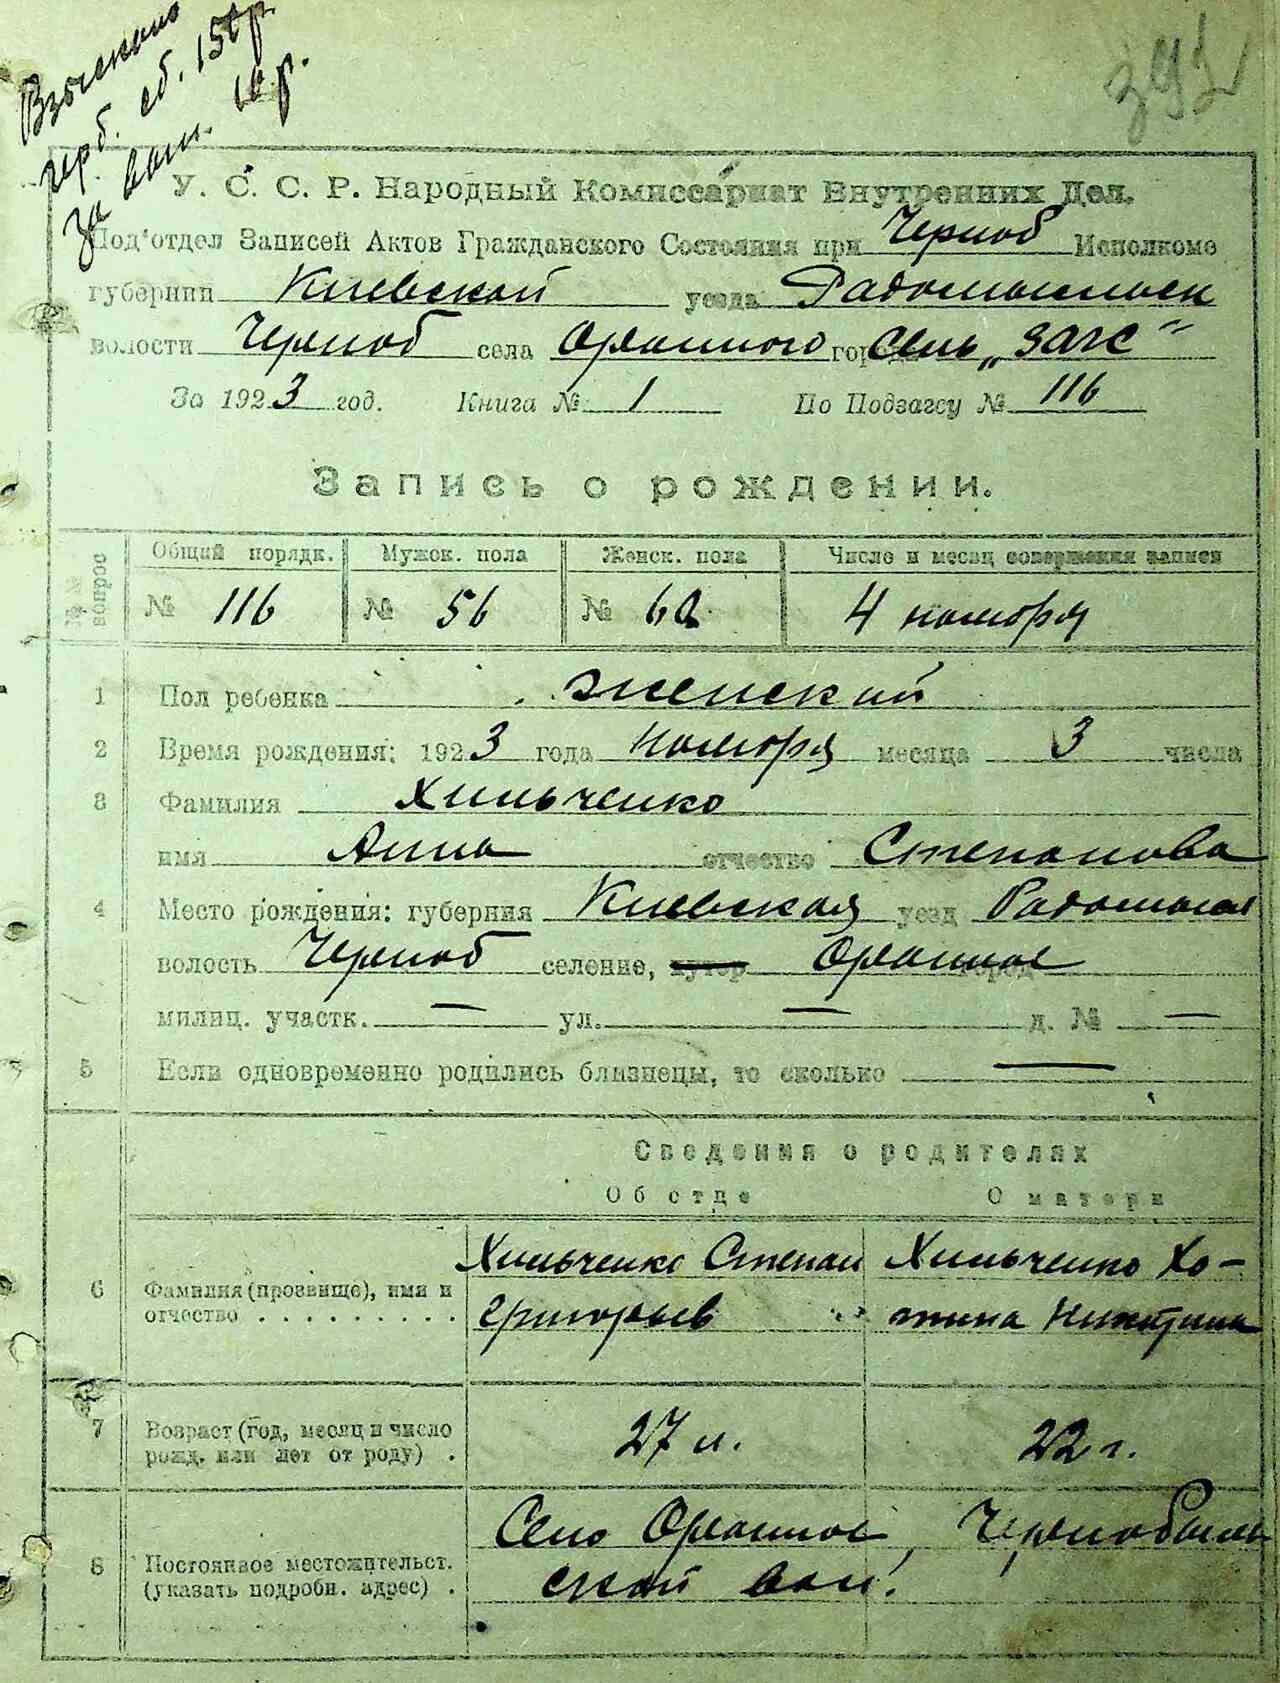 Взыскано
герб. сб. 150 р.
за бланк 10 р.
392
У. С. С. Р. Народный Комиссариат Внутренних Дел.
Под'отдел Записей Актов Гражданского Состояния при Черноб Исполкоме
губернии Киевской уезда Радомысльск
волости Черноб села Оранного город Сель „ЗАГС“
За 1923 год. Книга № 1 По Подзагсу № 116
Запись о рождении.
№№ вопрос Общий порядк. Мужск. пола Женск. пола Число и месяц совершения записи
№ 116 № 56 № 60 4 ноября
1 Пол ребенка женский
2 Время рождения: 1923 года ноября месяца 3 числа
3 Фамилия Хильченко
имя Анна отчество Степанова
4 Место рождения: губерния Киевская уезд Радомысл
волость Черноб селение, хутор Оранное город
милиц. участк. — ул. — д. № —
5 Если одновременно родились близнецы, то сколько —
Сведения о родителях
Об отце О матери
Хильченко Степан Хильченко Хо-
6 Фамилия (прозвище), имя и
отчество . . . . . . . . . Григорьев тина Никитина
7 Возраст (год, месяц и число
рожд. или лет от роду) . 27 л. 22 г.
Село Оранное, Чернобыль
8 Постоянное местожительст.
(указать подробн. адрес) . ской вол.